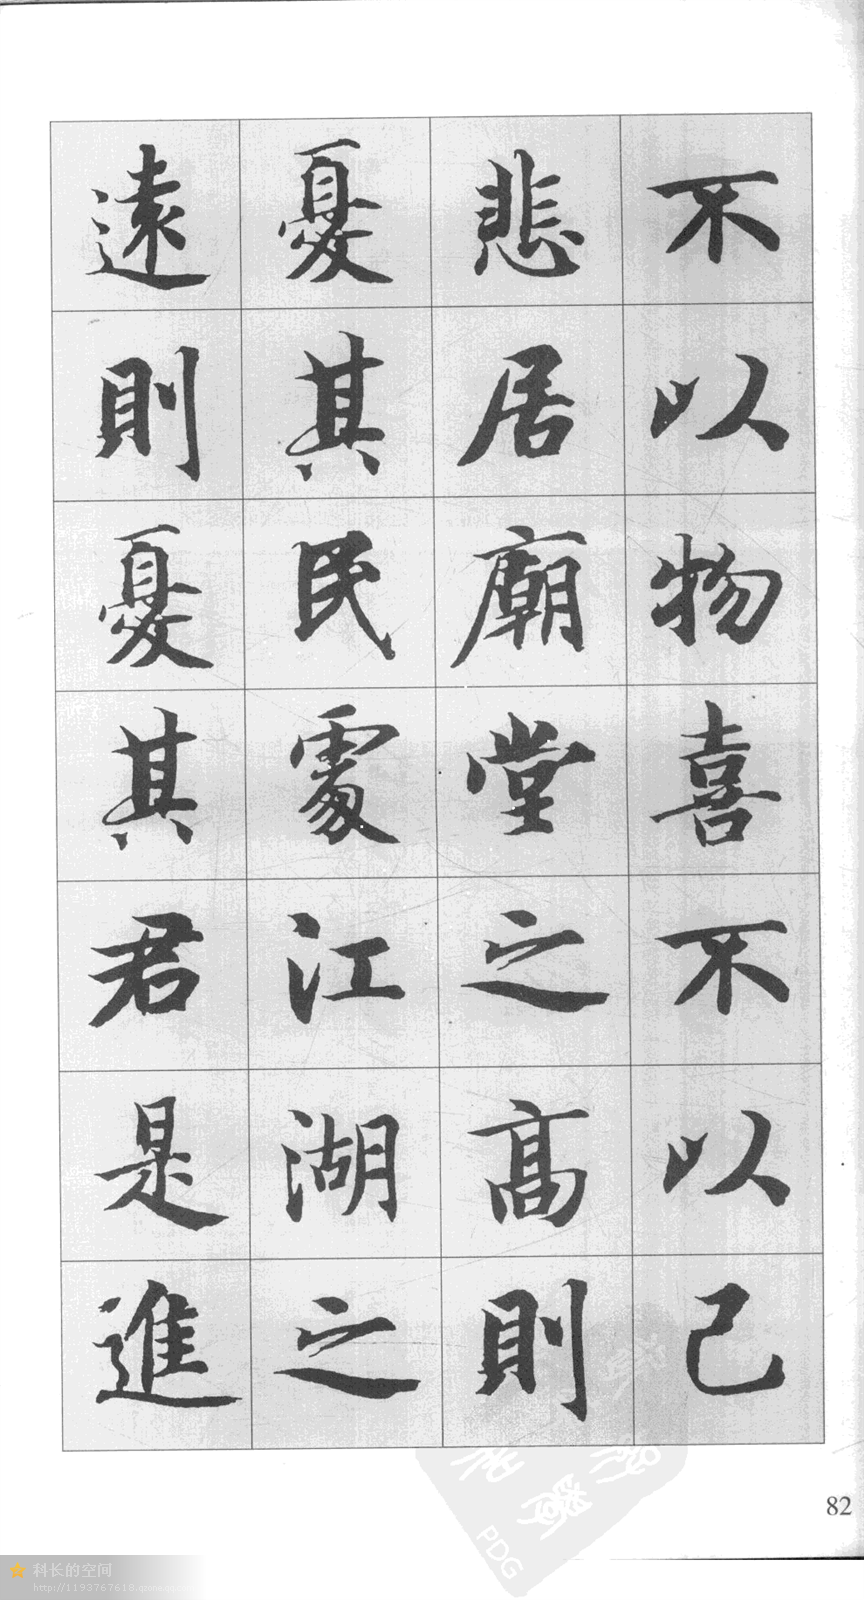 不以物喜不以己
悲居廟堂之高則
憂其民處江湖之
遠則憂其君是進
82
PDG
科长的空间